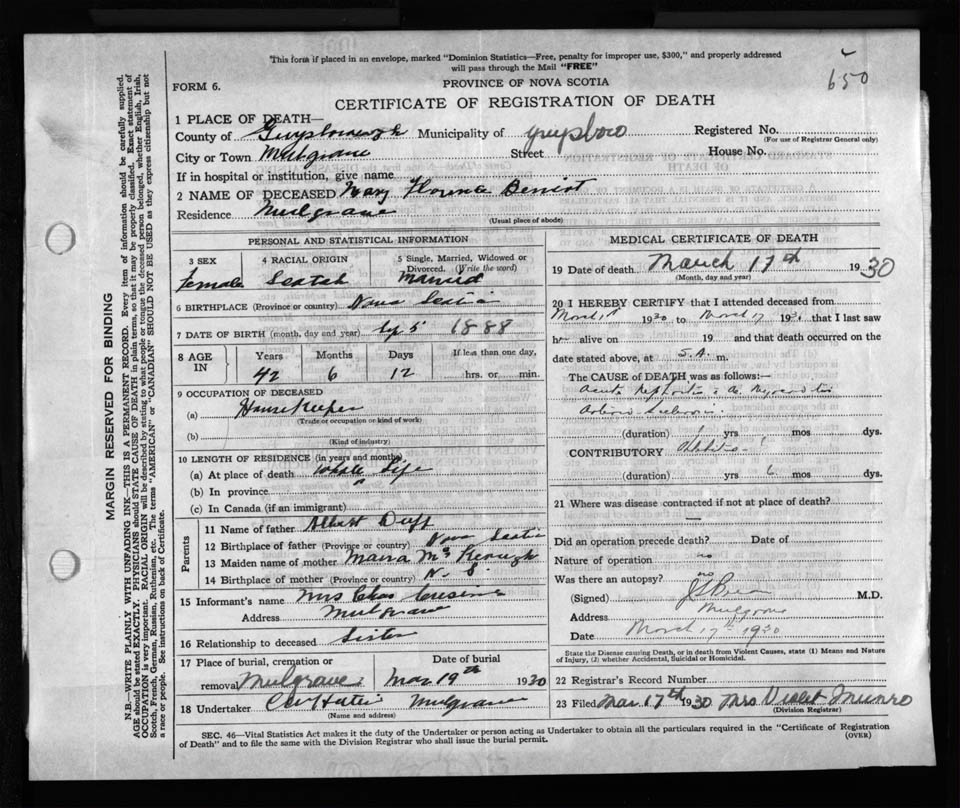 This form if placed in an envelope, marked "Dominion Statistics—Free, penalty for improper use, $300," and properly addressed
will pass through the Mail "FREE"
650
FORM 6.
PROVINCE OF NOVA SCOTIA
CERTIFICATE OF REGISTRATION OF DEATH
1 PLACE OF DEATH—
County of Guysborough Municipality of Guysboro Registered No.
(For use of Registrar General only)
City or Town Mulgrave Street House No.
If in hospital or institution, give name
2 NAME OF DECEASED Mary Florence Benoit
Residence Mulgrave
(Usual place of abode)
PERSONAL AND STATISTICAL INFORMATION
3 SEX 4 RACIAL ORIGIN 5 Single, Married, Widowed or
Divorced. (Write the word)
Female Scotch Married
6 BIRTHPLACE (Province or country) Nova Scotia
7 DATE OF BIRTH (month, day and year) 5 1888
8 AGE IN Years Months Days If less than one day,
42 6 12 hrs. or min.
9 OCCUPATION OF DECEASED
(a) House Keeper
(Trade or occupation or kind of work)
(b)
(Kind of industry)
10 LENGTH OF RESIDENCE (in years and months)
(a) At place of death Whole Life
(b) In province
(c) In Canada (if an immigrant)
Parents
11 Name of father Albert Duff
12 Birthplace of father (Province or country) Nova Scotia
13 Maiden name of mother Maria McKeough
14 Birthplace of mother (Province or country) N. S.
15 Informant's name Mrs Chas
Address Mulgrave
16 Relationship to deceased Sister
17 Place of burial, cremation or Date of burial
removal Mulgrave Mar 19th 1930
18 Undertaker Mulgrave
(Name and address)
MEDICAL CERTIFICATE OF DEATH
19 Date of death March 17th 1930
(Month, day and year)
20 I HEREBY CERTIFY that I attended deceased from
March 1930 to March 17 1930 that I last saw
h alive on 19 and that death occurred on the
date stated above, at 5.A. m.
The CAUSE of DEATH was as follows:—
Acute
(duration) yrs mos dys.
CONTRIBUTORY
(duration) yrs mos dys.
21 Where was disease contracted if not at place of death?
Did an operation precede death? Date of
Nature of operation no
Was there an autopsy? no
(Signed) M.D.
Address Mulgrave
Date March 17th 1930
State the Disease causing Death, or in death from Violent Causes, state (1) Means and Nature
of Injury, (2) whether Accidental, Suicidal or Homicidal.
22 Registrar's Record Number
23 Filed Mar 17th 1930 Mrs Violet Munro
(Division Registrar)
SEC. 46—Vital Statistics Act makes it the duty of the Undertaker or person acting as Undertaker to obtain all the particulars required in the "Certificate of Registration
of Death" and to file the same with the Division Registrar who shall issue the burial permit.
(OVER)
MARGIN RESERVED FOR BINDING
N.B.—WRITE PLAINLY WITH UNFADING INK—THIS IS A PERMANENT RECORD. Every item of information should be carefully supplied.
AGE should be stated EXACTLY. PHYSICIANS should STATE CAUSE OF DEATH in plain terms, so that it may be properly classified. Exact statement of
OCCUPATION is very important. RACIAL ORIGIN will be described by stating to what people or tongue the deceased person belonged, whether English, Irish,
Scotch, French, German, Russian, Ruthenian, etc. The terms "AMERICAN" or "CANADIAN" SHOULD NOT BE USED as they express citizenship but not
a race or people. See instructions on back of Certificate.